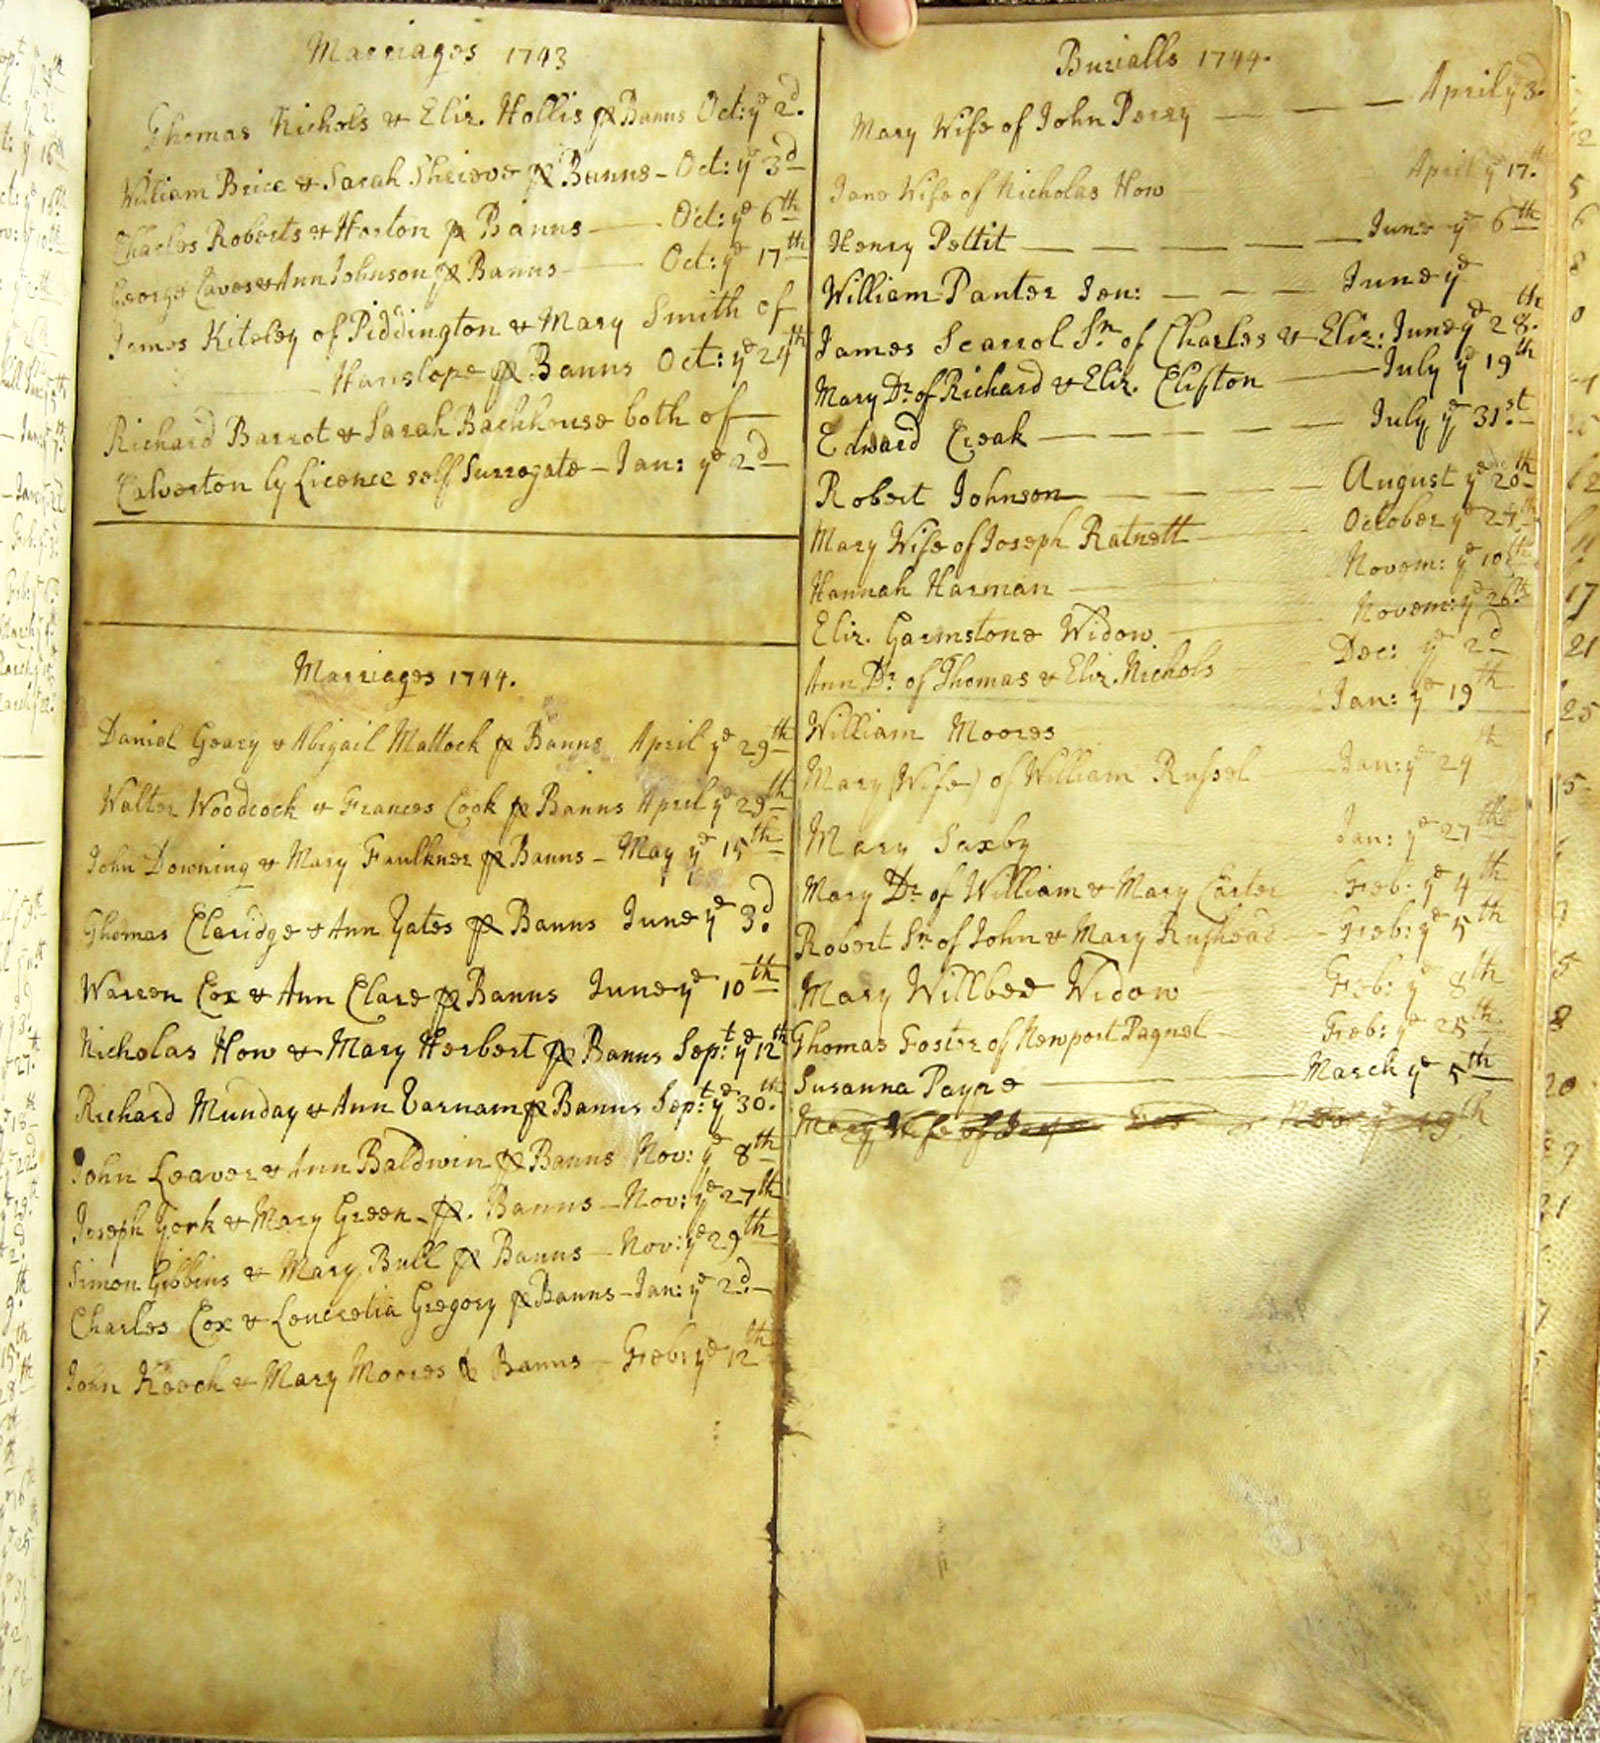 Marriages 1743
Thomas Nichols & Eliz. Hollis p Banns Oct: ye 2d.
William Brice & Sarah Shrieve p Banns - Oct: ye 3d
Charles Roberts & Horton p Banns — Oct: ye 6th
George Caves & Ann Johnson p Banns — Oct: ye 17th
James Kiteley of Piddington & Mary Smith of
Hanslope p Banns Oct: ye 24th
Richard Barrot & Sarah Backhouse both of
Calverton by Licence self Surrogate - Jan: ye 2d
Marriages 1744.
Daniel Geary & Abigail Mattock p Banns April ye 29th
Walter Woodcock & Frances Cook p Banns April ye 29th
John Downing & Mary Faulkner p Banns - May ye 15th
Thomas Claridge & Ann Yates p Banns June ye 3d.
Warren Cox & Ann Clare p Banns June ye 10th
Nicholas How & Mary Herbert p Banns Sept: ye 12th
Richard Munday & Ann Varnam p Banns Sept: ye 30th.
John Leaver & Ann Baldwin p Banns Nov: ye 8th
Joseph York & Mary Green - p. Banns - Nov: ye 27th
Simon Gibbins & Mary Bull p Banns - Nov: ye 29th
Charles Cox & Leucretia Gregory p Banns - Jan: ye 2d.
John Kooch & Mary Moores p Banns - Feb: ye 12th
Burialls 1744.
Mary Wife of John Perry — — — April ye 3d.
Jane Wife of Nicholas How April ye 17th.
Henry Pettit — — — — — June ye 6th
William Panter Sen: — — — June ye
James Scarrol Sn of Charles & Eliz: June ye 28th.
Mary Dr. of Richard & Eliz. Clifton — July ye 19th
Edward Creak — — — — — July ye 31st.
Robert Johnson — — — — August ye 20th
Mary Wife of Joseph Ratnett — October ye 24th
Hannah Harman — Novem: ye 10th
Eliz. Garmstone Widow — Novem: ye 26th
Ann Dr. of Thomas & Eliz. Nichols Dec: ye 2d
William Moores Jan: ye 19th
Mary (Wife) of William Russel Jan: ye 24th
Mary Saxby Jan: ye 27th
Mary Dr. of William & Mary Carter Feb: ye 4th
Robert Sn of John & Mary Rushead - Feb: ye 5th
Mary Willbee Widow Feb: ye 8th
Thomas Foster of Newport Pagnel Feb: ye 25th.
Susanna Payne — March ye 5th
Mary Wife of Nov: ye 19th